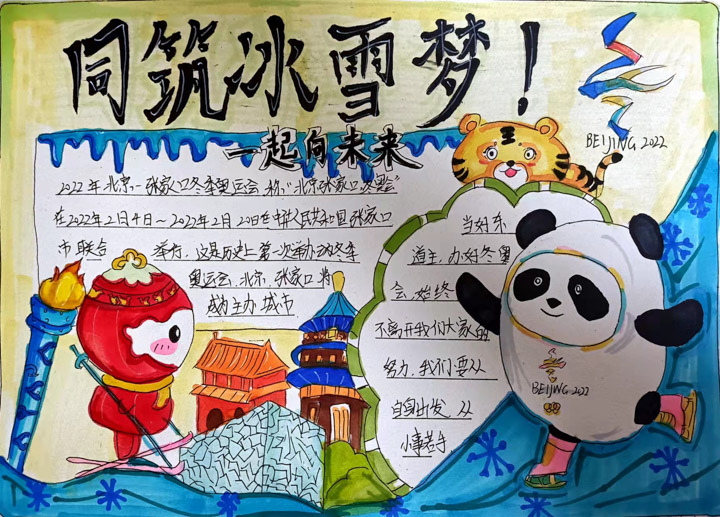 同筑冰雪梦！
一起向未来
BEIJING 2022
2022年北京-张家口冬季奥运会，称："北京张家口冬奥会"
在2022年2月4日～2022年2月20日在中华人民共和国张家口
市联合 举行，这是历史上第一次举办的冬季
奥运会，北京、张家口将
成为主办城市
当好东
道主，办好冬奥
会，始终
不离开我们大家的
努力，我们要从
自身出发，从
小事若手
BEIJING 2022